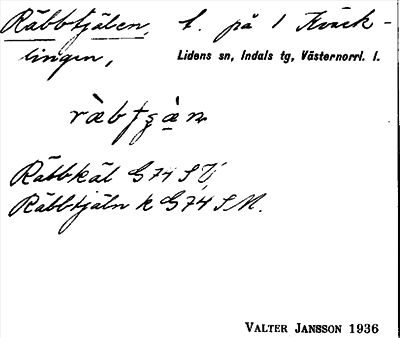 Räbbtjälen, t. på 1 Kväck-
lingen, Lidens sn, Indals tg, Västernorrl. l.
Räbbkäl G 74 S V
Räbbtjäln k G 74 S M.
VALTER JANSSON 1936